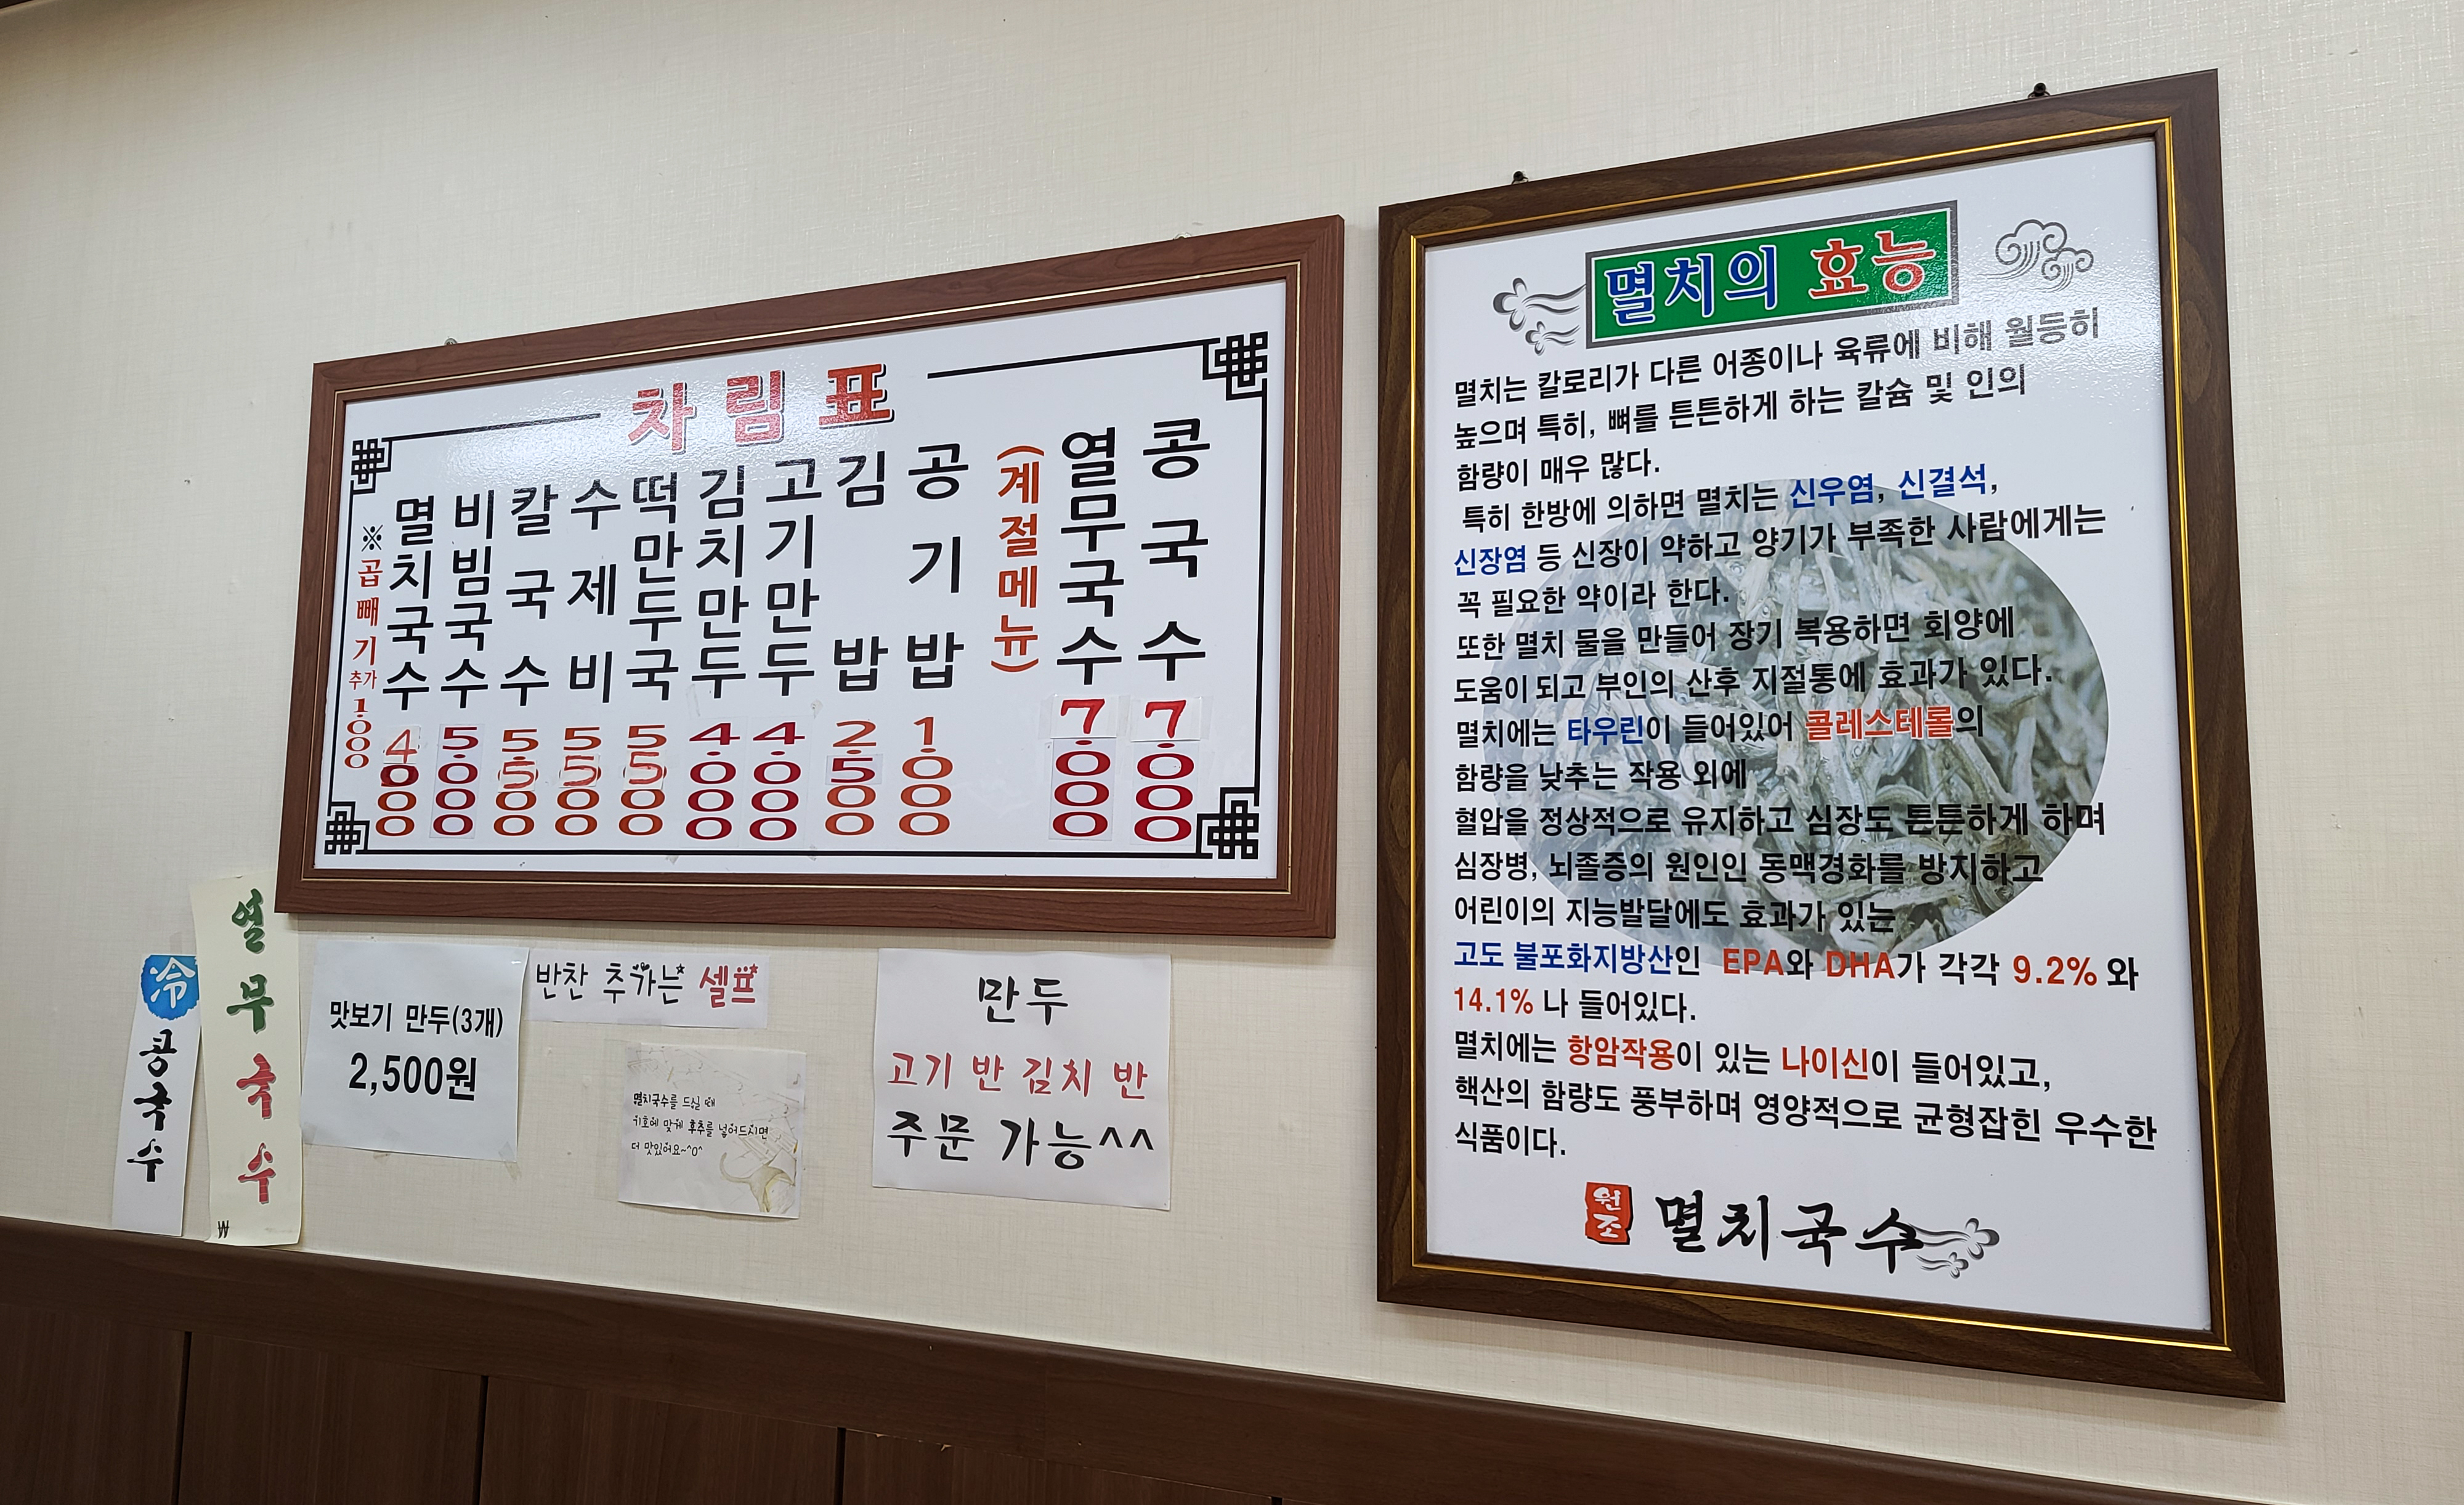 차림표
※곱빼기추가 1.000
멸치국수 4.000
비빔국수 5.000
칼국수 5.500
수제비 5.500
떡만두국 5.500
김치만두 4.000
고기만두 4.000
김밥 2.500
공기밥 1.000
(계절메뉴)
열무국수 7.000
콩국수 7.000
冷 콩국수
열무국수
₩
맛보기 만두(3개)
2,500원
반찬 추가는 셀프
멸치국수를 드실 때
기호에 맞게 후추를 넣어드시면
더 맛있어요~^0^
만두
고기 반 김치 반
주문 가능^^
멸치의 효능
멸치는 칼로리가 다른 어종이나 육류에 비해 월등히
높으며 특히, 뼈를 튼튼하게 하는 칼슘 및 인의
함량이 매우 많다.
특히 한방에 의하면 멸치는 신우염, 신결석,
신장염 등 신장이 약하고 양기가 부족한 사람에게는
꼭 필요한 약이라 한다.
또한 멸치 물을 만들어 장기 복용하면 회양에
도움이 되고 부인의 산후 지절통에 효과가 있다.
멸치에는 타우린이 들어있어 콜레스테롤의
함량을 낮추는 작용 외에
혈압을 정상적으로 유지하고 심장도 튼튼하게 하며
심장병, 뇌졸증의 원인인 동맥경화를 방지하고
어린이의 지능발달에도 효과가 있는
고도 불포화지방산인 EPA와 DHA가 각각 9.2% 와
14.1% 나 들어있다.
멸치에는 항암작용이 있는 나이신이 들어있고,
핵산의 함량도 풍부하며 영양적으로 균형잡힌 우수한
식품이다.
원조 멸치국수